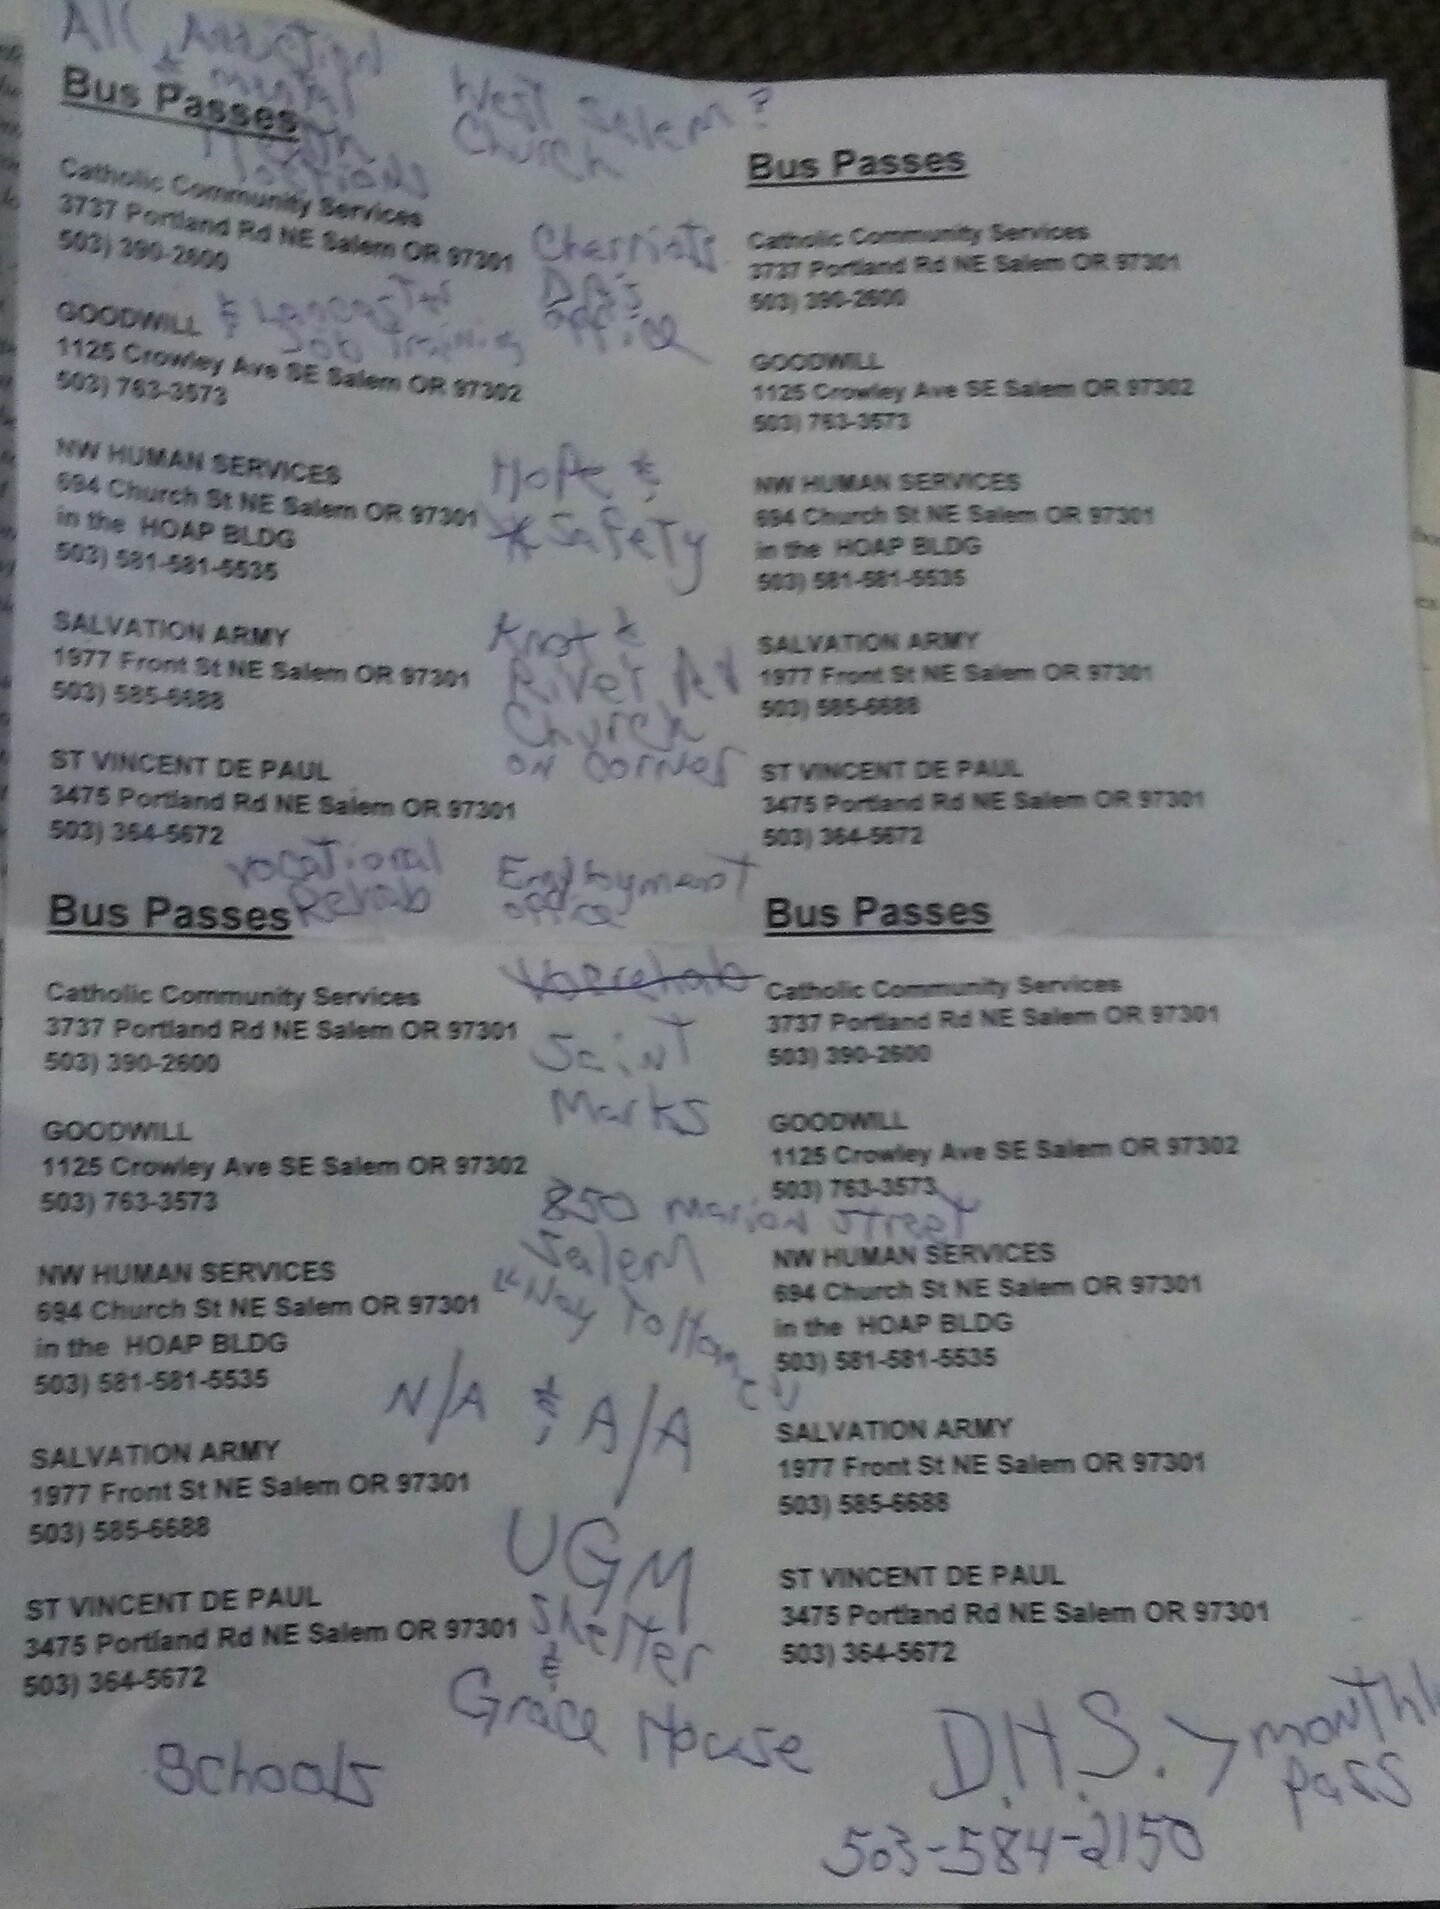 All Addiction
& mental
Health
locations
West Salem?
Church
Bus Passes
Catholic Community Services
3737 Portland Rd NE Salem OR 97301
503) 390-2600
Cherriots
DA's
office
GOODWILL
& Lancaster
Job Training
1125 Crowley Ave SE Salem OR 97302
503) 763-3573
NW HUMAN SERVICES
694 Church St NE Salem OR 97301
in the HOAP BLDG
503) 581-581-5535
Hope &
* Safety
SALVATION ARMY
1977 Front St NE Salem OR 97301
503) 585-6688
Knot &
River Rd
Church
on corner
ST VINCENT DE PAUL
3475 Portland Rd NE Salem OR 97301
503) 364-5672
Vocational
Rehab
Employment
office
Bus Passes
Catholic Community Services
3737 Portland Rd NE Salem OR 97301
503) 390-2600
GOODWILL
1125 Crowley Ave SE Salem OR 97302
503) 763-3573
NW HUMAN SERVICES
694 Church St NE Salem OR 97301
in the HOAP BLDG
503) 581-581-5535
SALVATION ARMY
1977 Front St NE Salem OR 97301
503) 585-6688
ST VINCENT DE PAUL
3475 Portland Rd NE Salem OR 97301
503) 364-5672
Bus Passes
Catholic Community Services
3737 Portland Rd NE Salem OR 97301
503) 390-2600
GOODWILL
1125 Crowley Ave SE Salem OR 97302
503) 763-3573
NW HUMAN SERVICES
694 Church St NE Salem OR 97301
in the HOAP BLDG
503) 581-581-5535
SALVATION ARMY
1977 Front St NE Salem OR 97301
503) 585-6688
ST VINCENT DE PAUL
3475 Portland Rd NE Salem OR 97301
503) 364-5672
Vocrehab
Saint
Marks
850 Marion Street
Salem
"Way To Home"
N/A & A/A
UGM
Shelter
&
Grace House
Schools
Bus Passes
Catholic Community Services
3737 Portland Rd NE Salem OR 97301
503) 390-2600
GOODWILL
1125 Crowley Ave SE Salem OR 97302
503) 763-3573
NW HUMAN SERVICES
694 Church St NE Salem OR 97301
in the HOAP BLDG
503) 581-581-5535
SALVATION ARMY
1977 Front St NE Salem OR 97301
503) 585-6688
ST VINCENT DE PAUL
3475 Portland Rd NE Salem OR 97301
503) 364-5672
D.H.S. > monthly
pass
503-584-2150